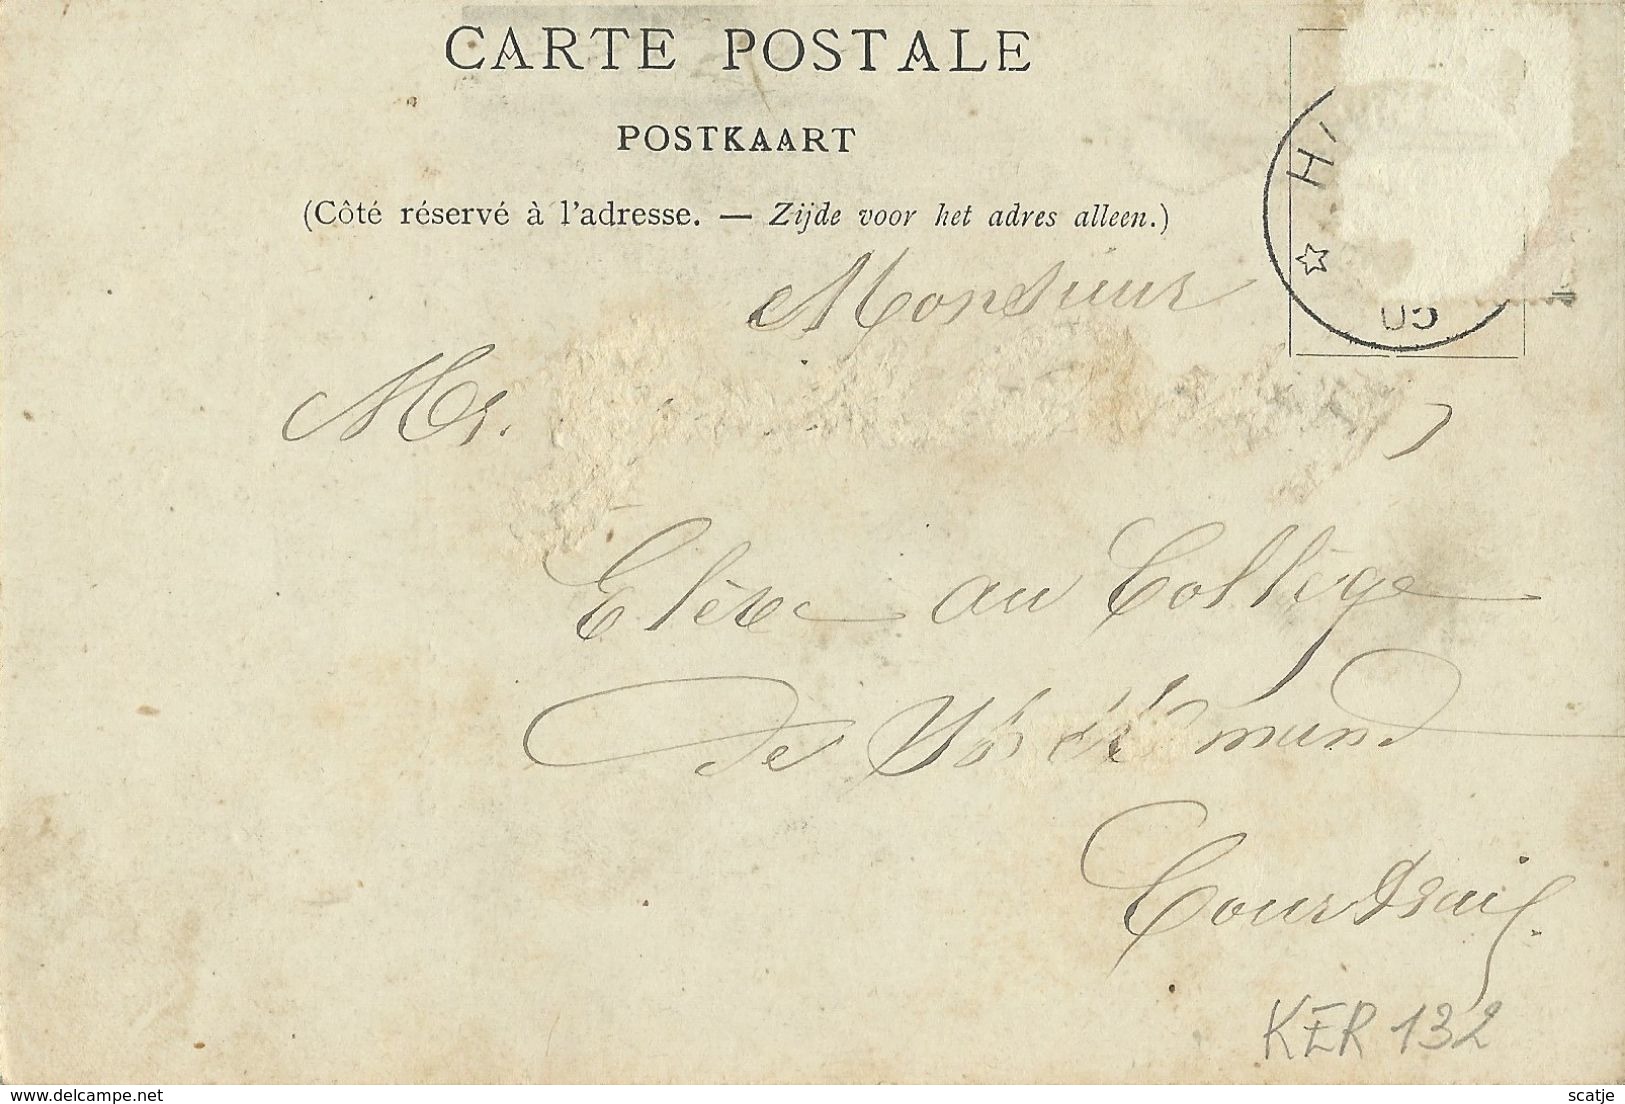 CARTE POSTALE
POSTKAART
(Côté réservé à l'adresse. — Zijde voor het adres alleen.)
H
05
Monsieur
Mr.
Elève au Collège
de St Amand
Courtrai.
KER 132
www.delcampe.net
scatje